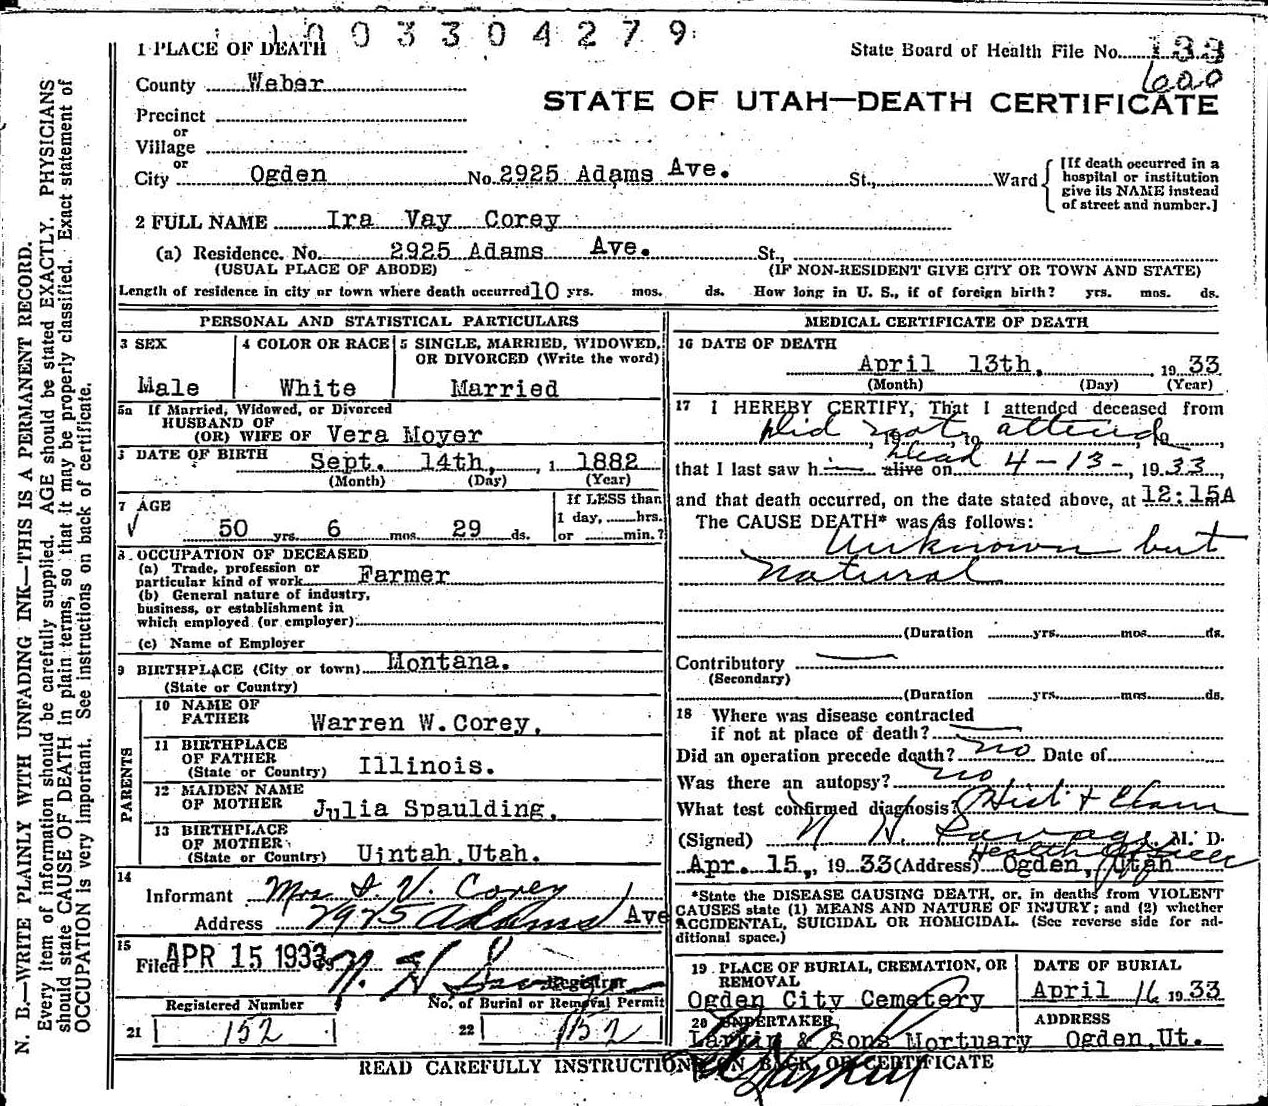 1003304279
1 PLACE OF DEATH
State Board of Health File No. 133
600
County Weber
STATE OF UTAH—DEATH CERTIFICATE
Precinct
or
Village
or
City Ogden No. 2925 Adams Ave. St., Ward
[If death occurred in a
hospital or institution
give its NAME instead
of street and number.]
2 FULL NAME Ira Vay Corey
(a) Residence. No. 2925 Adams Ave. St.,
(USUAL PLACE OF ABODE) (IF NON-RESIDENT GIVE CITY OR TOWN AND STATE)
Length of residence in city or town where death occurred 10 yrs. mos. ds. How long in U. S., if of foreign birth? yrs. mos. ds.
PERSONAL AND STATISTICAL PARTICULARS
3 SEX
Male
4 COLOR OR RACE
White
5 SINGLE, MARRIED, WIDOWED,
OR DIVORCED (Write the word)
Married
5a If Married, Widowed, or Divorced
HUSBAND OF
(OR) WIFE OF Vera Moyer
DATE OF BIRTH Sept. 14th, 1 1882
(Month) (Day) (Year)
7 AGE
50 yrs. 6 mos. 29 ds.
If LESS than
1 day, hrs.
or min.?
8. OCCUPATION OF DECEASED
(a) Trade, profession or
particular kind of work Farmer
(b) General nature of industry,
business, or establishment in
which employed (or employer)
(c) Name of Employer
9 BIRTHPLACE (City or town) Montana.
(State or Country)
PARENTS
10 NAME OF
FATHER Warren W. Corey,
11 BIRTHPLACE
OF FATHER
(State or Country) Illinois.
12 MAIDEN NAME
OF MOTHER Julia Spaulding,
13 BIRTHPLACE
OF MOTHER
(State or Country) Uintah, Utah.
14
Informant Mrs I. V. Corey
Address 2925 Adams Ave
15
Filed APR 15 1933 N. H. Savage
Registrar
Registered Number No. of Burial or Removal Permit
21 152 22 152
MEDICAL CERTIFICATE OF DEATH
16 DATE OF DEATH
April 13th, 1933
(Month) (Day) (Year)
17 I HEREBY CERTIFY, That I attended deceased from
Did not attend 19 to 19
that I last saw h alive on dead 4-13-, 1933,
and that death occurred, on the date stated above, at 12:15A
The CAUSE DEATH* was as follows:
Unknown but
natural
(Duration yrs. mos. ds.
Contributory
(Secondary)
(Duration yrs. mos. ds.
18 Where was disease contracted
if not at place of death?
Did an operation precede death? no Date of
Was there an autopsy? no
What test confirmed diagnosis? Hist + Exam
(Signed) N H Savage, M. D.
Health Officer
Apr. 15, 1933 (Address) Ogden, Utah
*State the DISEASE CAUSING DEATH, or, in deaths from VIOLENT
CAUSES state (1) MEANS AND NATURE OF INJURY; and (2) whether
ACCIDENTAL, SUICIDAL OR HOMICIDAL. (See reverse side for ad-
ditional space.)
19 PLACE OF BURIAL, CREMATION, OR
REMOVAL
Ogden City Cemetery
DATE OF BURIAL
April 16 1933
20 UNDERTAKER
Larkin & Sons Mortuary
ADDRESS
Ogden, Ut.
READ CAREFULLY INSTRUCTIONS ON BACK OF CERTIFICATE
N. B.—WRITE PLAINLY WITH UNFADING INK—THIS IS A PERMANENT RECORD.
Every item of information should be carefully supplied. AGE should be stated EXACTLY. PHYSICIANS
should state CAUSE OF DEATH in plain terms, so that it may be properly classified. Exact statement of
OCCUPATION is very important. See instructions on back of certificate.